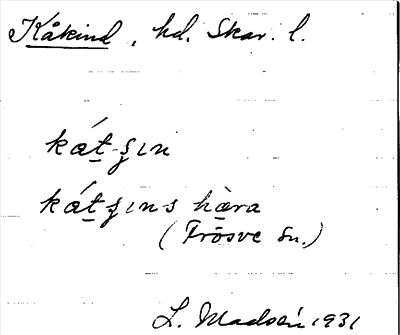 Kåkind, hd. Skar. l.
kát̠ʒın
kát̠ʒıns hàra
(Frösve sn.)
L. Madsén 1931